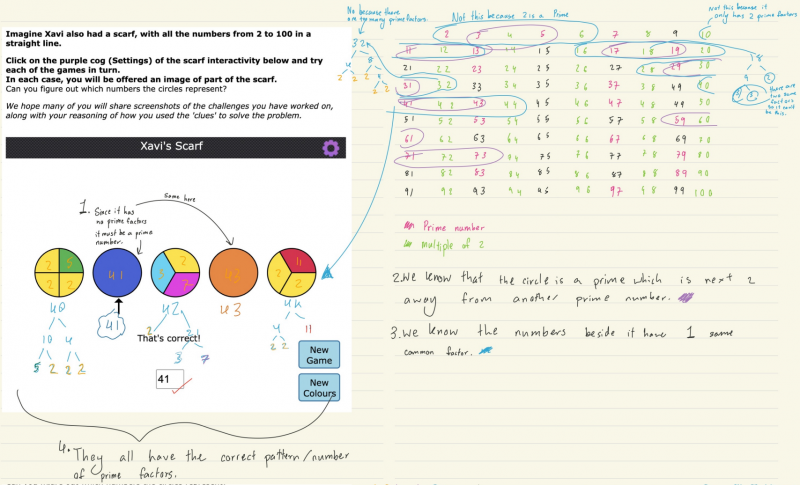 Imagine Xavi also had a scarf, with all the numbers from 2 to 100 in a
straight line.
Click on the purple cog (Settings) of the scarf interactivity below and try
each of the games in turn.
In each case, you will be offered an image of part of the scarf.
Can you figure out which numbers the circles represent?
We hope many of you will share screenshots of the challenges you have worked on,
along with your reasoning of how you used the 'clues' to solve the problem.
Xavi's Scarf
1. Since it has
no prime factors
it must be a prime
number.
Same here
2 5
2 2
41
2
3 7
43
11
2 2
40
42
43
44
10 4
41
2 21
4 11
5 2 2 2
3 7
2 2
That's correct!
41
New
Game
New
Colours
4. They all have the correct pattern/number
of prime factors.
No because there
are too many prime factors.
32
4 8
2 2 2
2 2
Not this because 2 is a Prime
Not this because it
only has 2 prime factors
2 3 4 5 6 7 8 9 10
11 12 13 14 15 16 17 18 19 20
21 22 23 24 25 26 27 28 29 30
31 32 33 34 35 36 37 38 39 40
41 42 43 44 45 46 47 48 49 50
51 52 53 54 55 56 57 58 59 60
61 62 63 64 65 66 67 68 69 70
71 72 73 74 75 76 77 78 79 80
81 82 83 84 85 86 87 88 89 90
91 92 93 94 95 96 97 98 99 100
18
9 2
3 3
there are
two same
factors
so it could
be this.
Prime number
multiple of 2
2. We know that the circle is a prime which is next 2
away from another prime number.
3. we know the numbers beside it have 1 same
common factor.